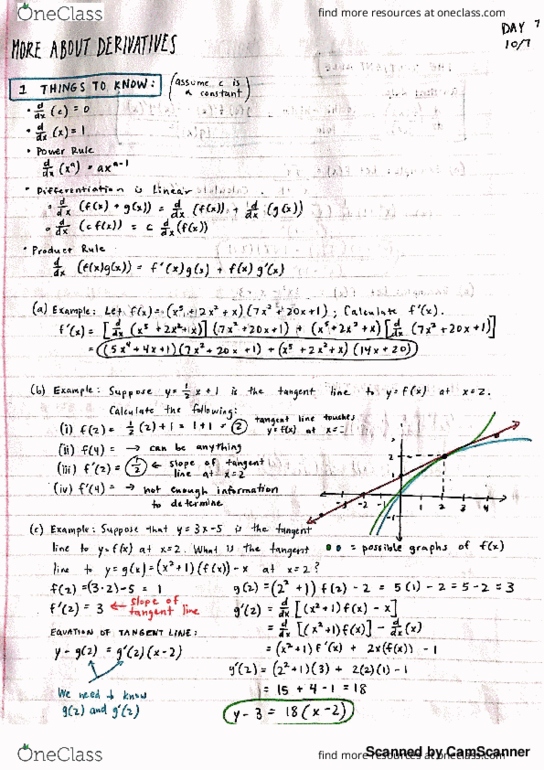 OneClass
find more resources at oneclass.com
DAY 7
10/7
MORE ABOUT DERIVATIVES
1 THINGS TO KNOW: (assume c is a constant)
• d/dx (c) = 0
• d/dx (x) = 1
• Power Rule
d/dx (xᵃ) = axᵃ⁻¹
• Differentiation is Linear
• d/dx (f(x) + g(x)) = d/dx (f(x)) + d/dx (g(x))
• d/dx (c f(x)) = c d/dx (f(x))
• Product Rule
d/dx (f(x)g(x)) = f'(x)g(x) + f(x) g'(x)
(a) Example: Let f(x) = (x⁵ + 2x² + x)(7x² + 20x + 1); Calculate f'(x).
f'(x) = [d/dx (x⁵ + 2x² + x)] (7x² + 20x + 1) + (x⁵ + 2x² + x) [d/dx (7x² + 20x + 1)]
= (5x⁴ + 4x + 1)(7x² + 20x + 1) + (x⁵ + 2x² + x)(14x + 20)
(b) Example: Suppose y = 1/2 x + 1 is the tangent line to y = f(x) at x = 2.
Calculate the following:
(i) f(2) = 1/2 (2) + 1 = 1 + 1 = 2 tangent line touches y = f(x) at x =
(ii) f(4) = → can be anything
(iii) f'(2) = 1/2 ← slope of tangent line at x = 2
(iv) f'(4) = → not enough information to determine
2
-1
-3 -2 -1 1 2 3 4
(c) Example: Suppose that y = 3x - 5 is the tangent
= possible graphs of f(x)
line to y = f(x) at x = 2. What is the tangent
line to y = g(x) = (x² + 1)(f(x)) - x at x = 2?
f(2) = (3·2) - 5 = 1
g(2) = (2² + 1) f(2) - 2 = 5(1) - 2 = 5 - 2 = 3
f'(2) = 3 ← slope of tangent line
g'(2) = d/dx [(x² + 1) f(x) - x]
= d/dx [(x² + 1) f(x)] - d/dx (x)
EQUATION OF TANGENT LINE:
= (x² + 1) f'(x) + 2x(f(x)) - 1
y - g(2) = g'(2)(x - 2)
g'(2) = (2² + 1)(3) + 2(2)(1) - 1
= 15 + 4 - 1 = 18
We need to know
g(2) and g'(2)
y - 3 = 18(x - 2)
OneClass
find more resources at oneclass.com
Scanned by CamScanner